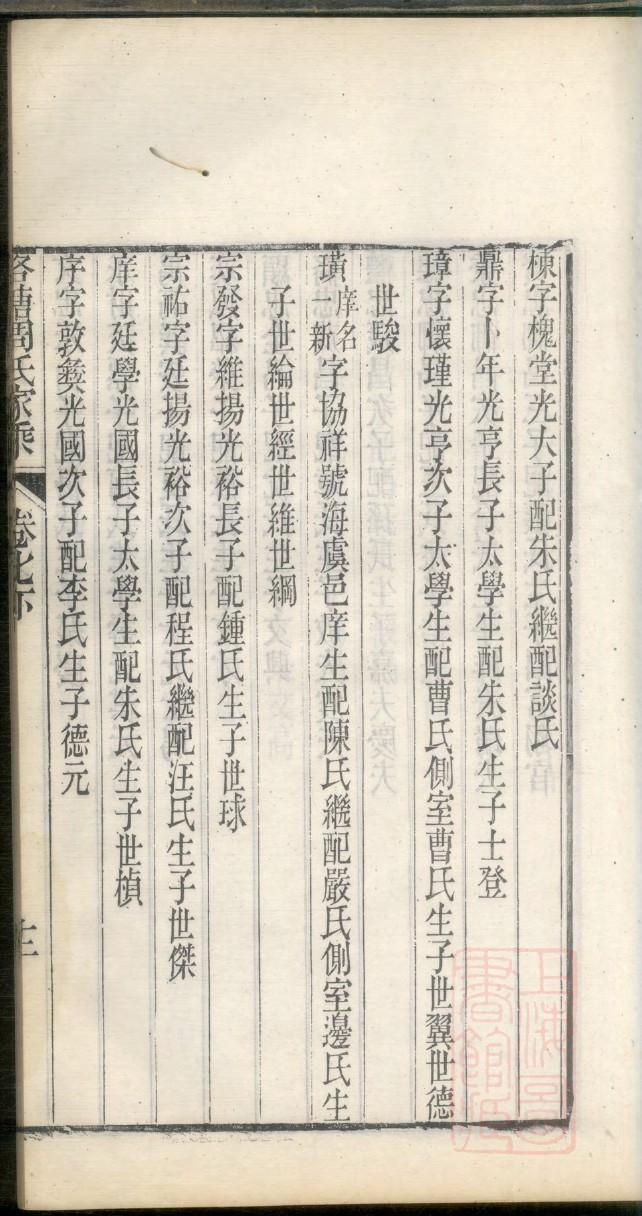 棟字槐堂光大子配朱氏繼配談氏
鼎字卜年光亨長子太學生配朱氏生子士登
璋字懷瑾光亨次子太學生配曹氏側室曹氏生子世翼世德
世駿
璜庠名一新字協祥號海虞邑庠生配陳氏繼配嚴氏側室邊氏生
子世綸世經世維世綱
宗發字維揚光裕長子配鍾氏生子世球
宗祐字廷揚光裕次子配程氏繼配汪氏生子世傑
庠字廷學光國長子太學生配朱氏生子世楨
序字敦彝光國次子配李氏生子德元
塘周氏家乘 卷之下
上海圖書館藏